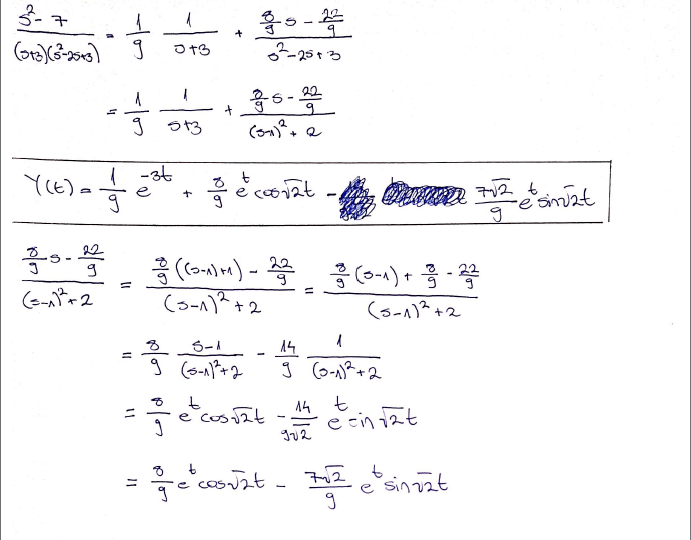 (s²-7)/((s+3)(s²-2s+3)) = 1/9 1/(s+3) + (8/9 s - 22/9)/(s²-2s+3)
= 1/9 1/(s+3) + (8/9 s - 22/9)/((s-1)²+2)
Y(t) = 1/9 e^(-3t) + 8/9 e^t cos√2t - 7√2/9 e^t sin√2t
(8/9 s - 22/9)/((s-1)²+2) = (8/9 ((s-1)+1) - 22/9)/((s-1)²+2) = (8/9 (s-1) + 8/9 - 22/9)/((s-1)²+2)
= 8/9 (s-1)/((s-1)²+2) - 14/9 1/((s-1)²+2)
= 8/9 e^t cos√2t - 14/(9√2) e^t sin√2t
= 8/9 e^t cos√2t - 7√2/9 e^t sin√2t